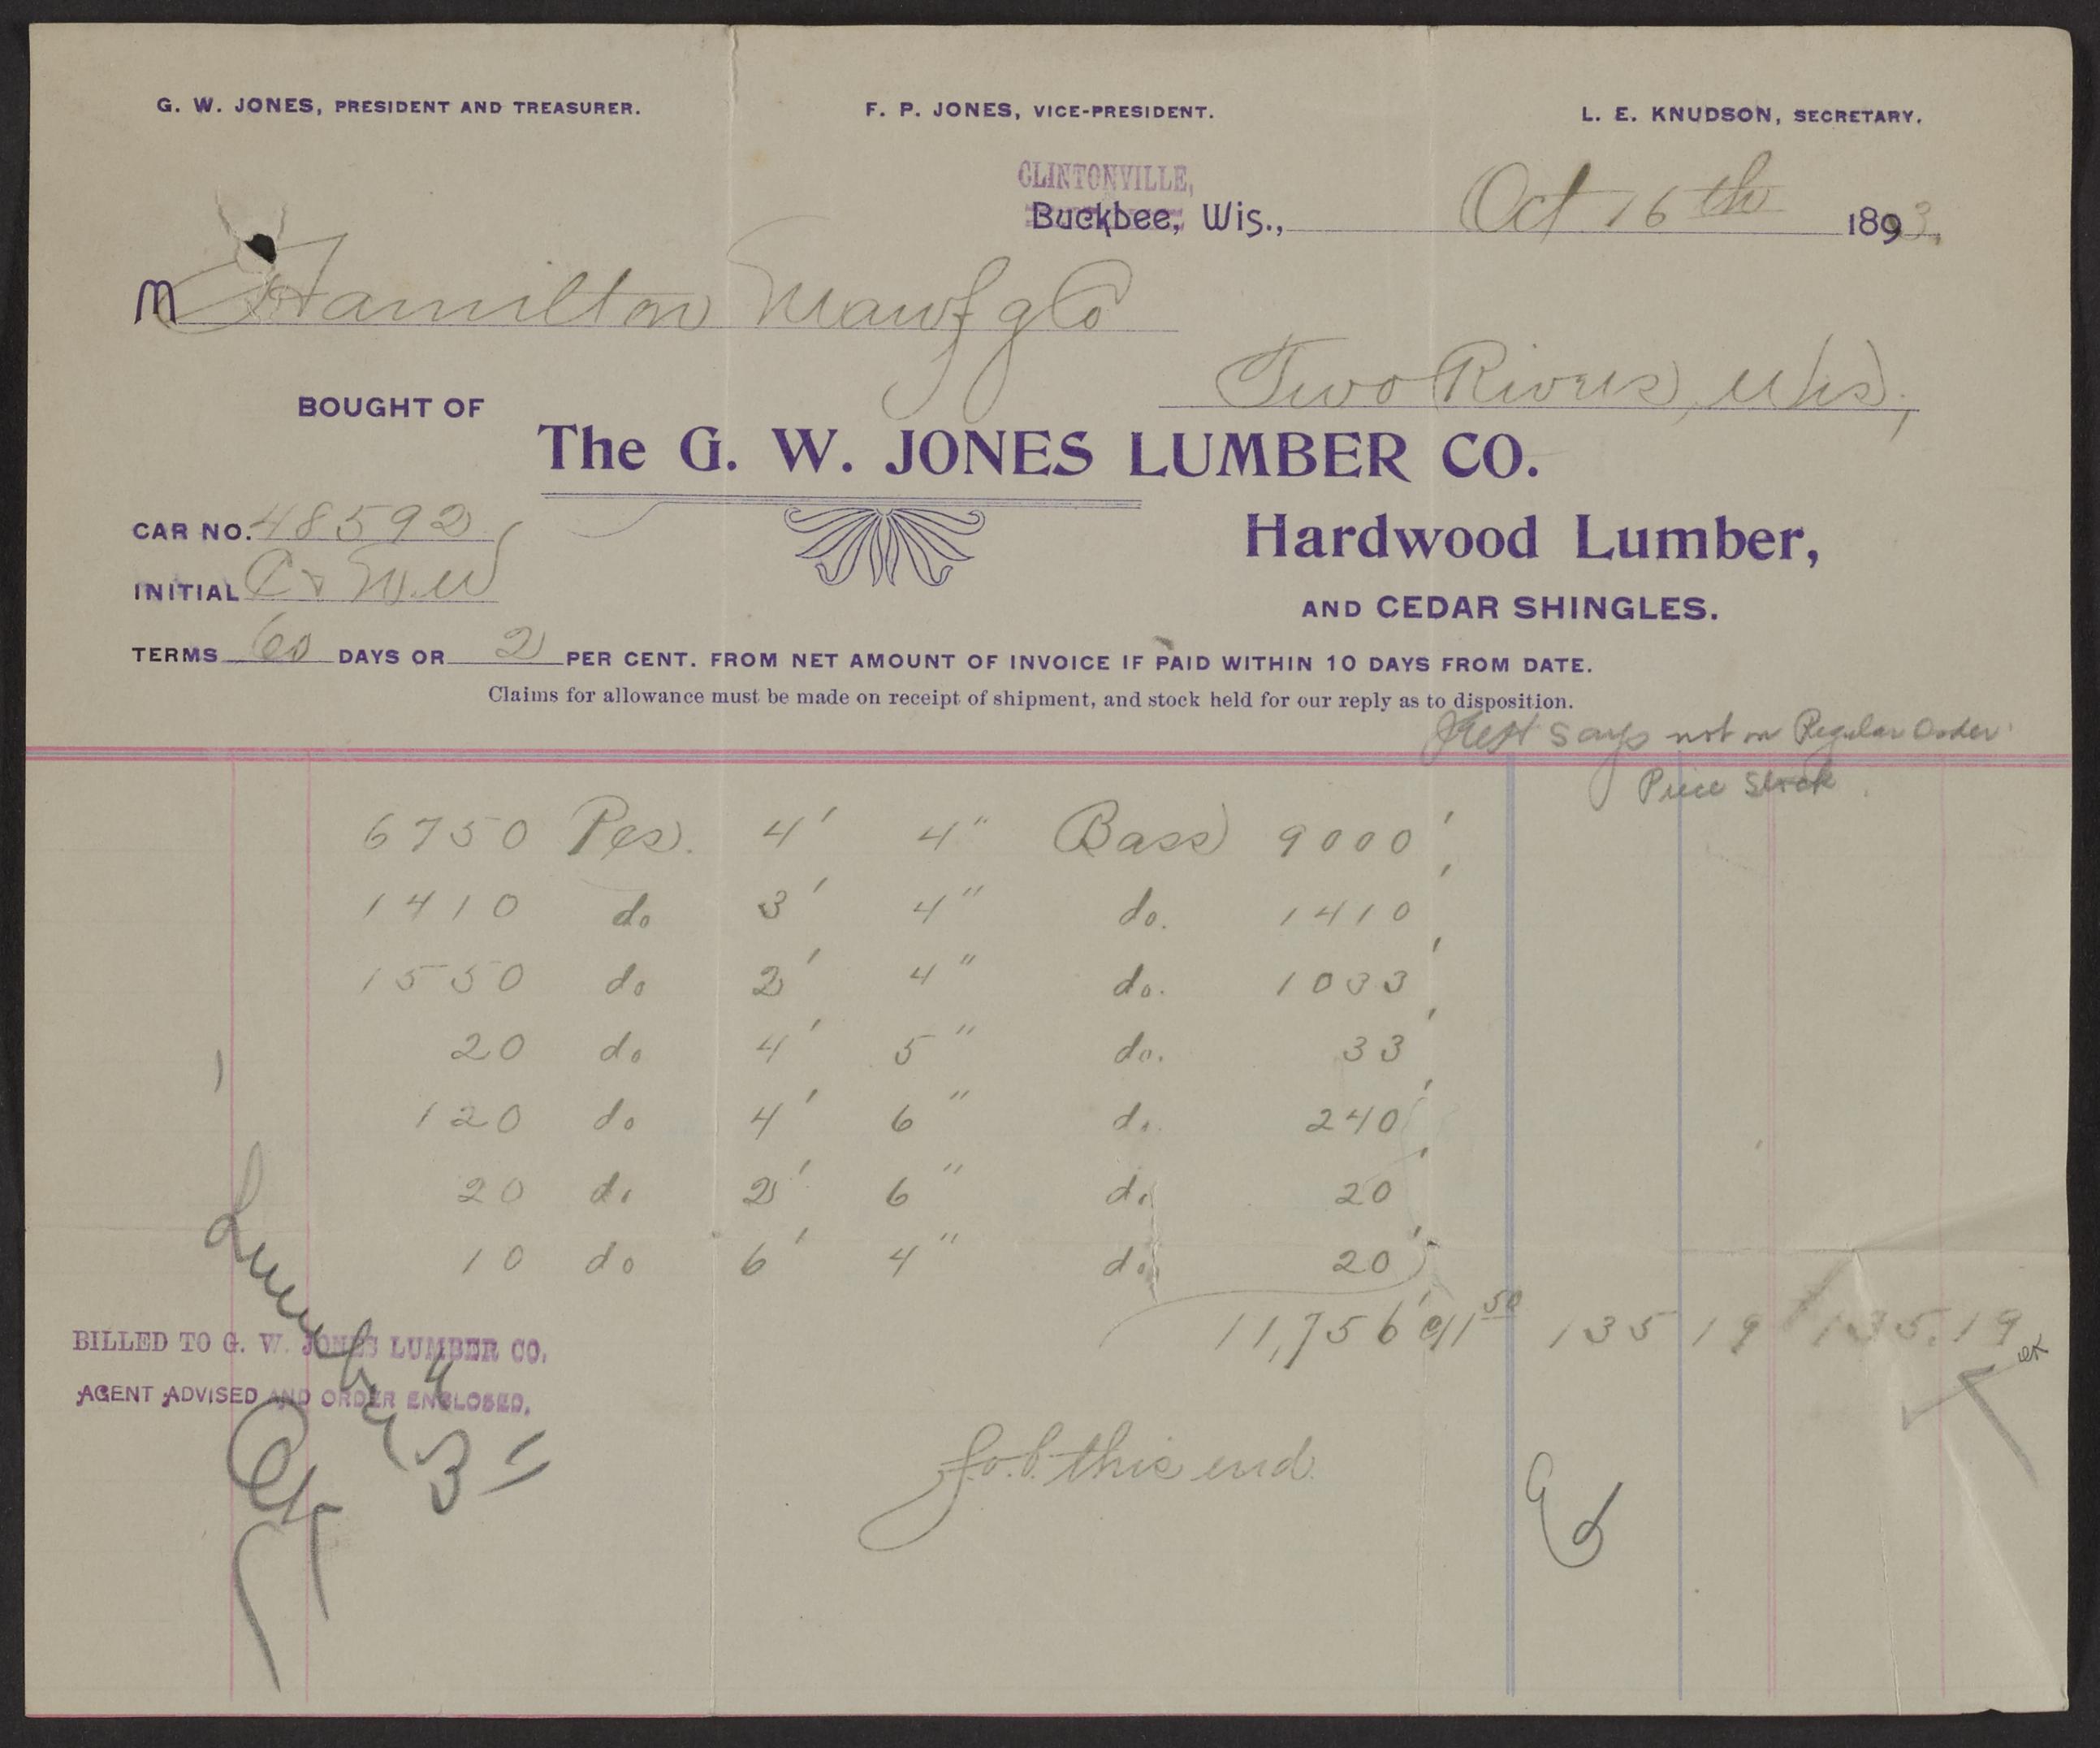 G. W. JONES, PRESIDENT AND TREASURER. F. P. JONES, VICE-PRESIDENT. L. E. KNUDSON, SECRETARY.
CLINTONVILLE,
Buckbee, Wis., Oct 16th 1893.
M Hamilton Manfg Co
Two Rivers, Wis,
BOUGHT OF
The G. W. JONES LUMBER CO.
CAR NO. 48592
Hardwood Lumber,
INITIAL C & N.W
AND CEDAR SHINGLES.
TERMS 60 DAYS OR 2 PER CENT. FROM NET AMOUNT OF INVOICE IF PAID WITHIN 10 DAYS FROM DATE.
Claims for allowance must be made on receipt of shipment, and stock held for our reply as to disposition.
says not on Regular Order
Price Stock
6750 Pcs. 4' 4" Bass 9000'
1410 do 3' 4" do. 1410'
1550 do 2' 4" do. 1033'
20 do 4' 5" do. 33'
120 do 4' 6" do. 240'
20 do 2' 6" do 20'
10 do 6' 4" do 20'
11,756' @ 11 50 135 19 135.19
ok
Lumber
BILLED TO G. W. JONES LUMBER CO.
AGENT ADVISED AND ORDER ENCLOSED.
43
OK
f.o.b. this end.